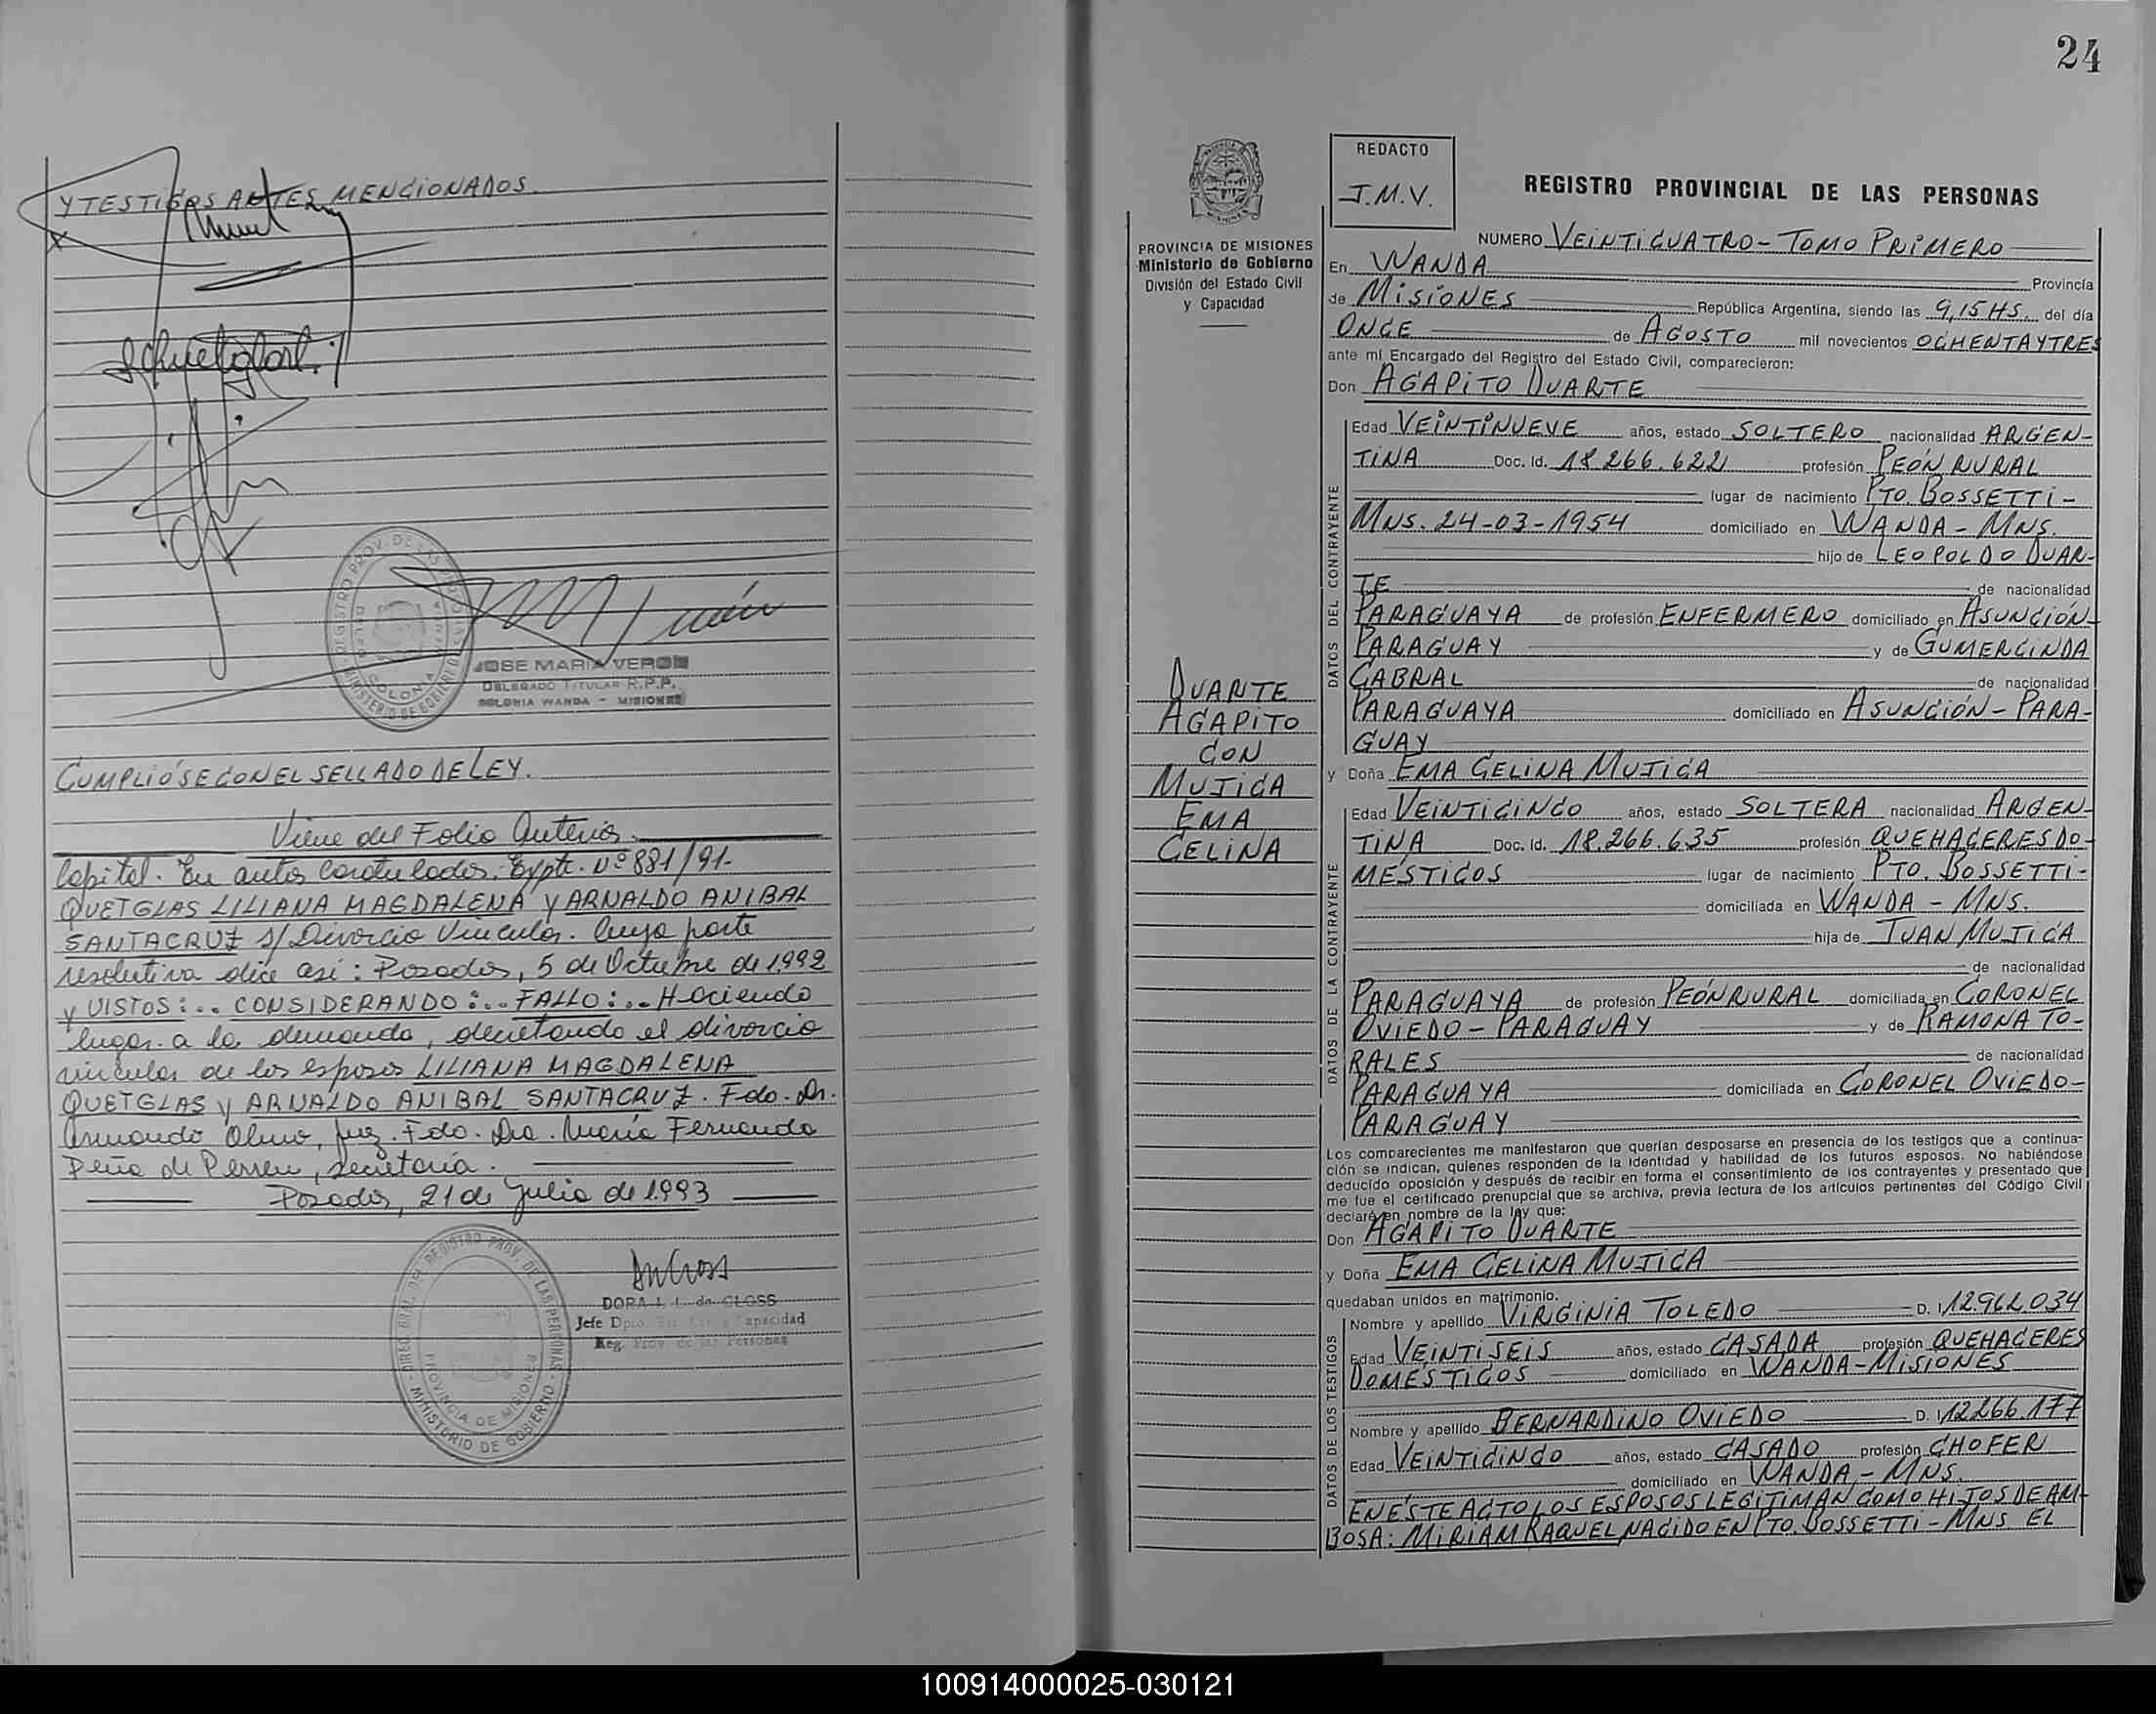 Y TESTIGOS ANTES MENCIONADOS
JOSE MARIA VERON
DELEGADO TITULAR R.P.P.
COLONIA WANDA - MISIONES
CUMPLIÓSE CON EL SELLADO DE LEY.
Viene del Folio Anterior.
Capital. En autos Caratulados: Expte. Nº 881/91-
QUETGLAS LILIANA MAGDALENA Y ARNALDO ANIBAL
SANTACRUZ s/ Divorcio Vincular. Cuya parte
resolutiva dice así: Posadas, 5 de Octubre de 1992
Y VISTOS:... CONSIDERANDO:... FALLO:... Haciendo
lugar a la demanda, decretando el divorcio
vincular de los esposos LILIANA MAGDALENA
QUETGLAS Y ARNALDO ANIBAL SANTACRUZ. Fdo. Dr.
Armando Olmo, Juez. Fdo. Dra. María Fernanda
Peña de Perreu, secretaria.
Posadas, 21 de Julio de 1993
DIREC. GRAL. DEL REGISTRO PROV. DE LAS PERSONAS
PROVINCIA DE MISIONES
MINISTERIO DE GOBIERNO
DORA L. L. de GLOSS
Jefe Dpto. Est. Civil y Capacidad
Reg. Prov. de las Personas
24
PROVINCIA DE MISIONES
Ministerio de Gobierno
División del Estado Civil
y Capacidad
DUARTE
AGAPITO
CON
MUJICA
EMA
CELINA
REDACTO
J.M.V.
REGISTRO PROVINCIAL DE LAS PERSONAS
NUMERO VEINTICUATRO - TOMO PRIMERO
En WANDA Provincia
de MISIONES República Argentina, siendo las 9,15 HS. del día
ONCE de AGOSTO mil novecientos OCHENTA Y TRES
ante mí Encargado del Registro del Estado Civil, comparecieron:
Don AGAPITO DUARTE
DATOS DEL CONTRAYENTE
Edad VEINTINUEVE años, estado SOLTERO nacionalidad ARGEN-
TINA Doc. Id. 18.266.622 profesión PEÓN RURAL
lugar de nacimiento PTO. BOSSETTI-
MNS. 24-03-1954 domiciliado en WANDA - MNS.
hijo de LEOPOLDO DUAR-
TE de nacionalidad
PARAGUAYA de profesión ENFERMERO domiciliado en ASUNCIÓN-
PARAGUAY y de GUMERCINDA
CABRAL de nacionalidad
PARAGUAYA domiciliado en ASUNCIÓN - PARA-
GUAY
y Doña EMA CELINA MUJICA
DATOS DE LA CONTRAYENTE
Edad VEINTICINCO años, estado SOLTERA nacionalidad ARGEN-
TINA Doc. Id. 18.266.635 profesión QUEHACERES DO-
MÉSTICOS lugar de nacimiento PTO. BOSSETTI-
domiciliada en WANDA - MNS.
hija de JUAN MUJICA
de nacionalidad
PARAGUAYA de profesión PEÓN RURAL domiciliada en CORONEL
OVIEDO - PARAGUAY y de RAMONA TO-
RALES de nacionalidad
PARAGUAYA domiciliada en CORONEL OVIEDO-
PARAGUAY
Los comparecientes me manifestaron que querían desposarse en presencia de los testigos que a continua-
ción se indican, quienes responden de la identidad y habilidad de los futuros esposos. No habiéndose
deducido oposición y después de recibir en forma el consentimiento de los contrayentes y presentado que
me fue el certificado prenupcial que se archiva, previa lectura de los artículos pertinentes del Código Civil
declaré en nombre de la ley que:
Don AGAPITO DUARTE
y Doña EMA CELINA MUJICA
quedaban unidos en matrimonio.
DATOS DE LOS TESTIGOS
Nombre y apellido VIRGINIA TOLEDO D. I. 12.962.034
Edad VEINTISEIS años, estado CASADA profesión QUEHACERES
DOMÉSTICOS domiciliado en WANDA - MISIONES
Nombre y apellido BERNARDINO OVIEDO D. I. 12.266.177
Edad VEINTICINCO años, estado CASADO profesión CHOFER
domiciliado en WANDA - MNS.
EN ÉSTE ACTO LOS ESPOSOS LEGITIMAN COMO HIJOS DE AM-
BOS A: MIRIAM RAQUEL, NACIDO EN PTO. BOSSETTI - MNS EL
100914000025-030121